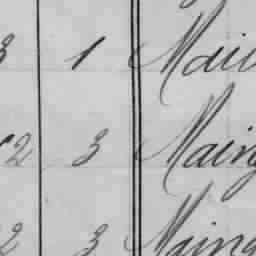 3 1 Mai
12 3 Maing
2 3 Maing